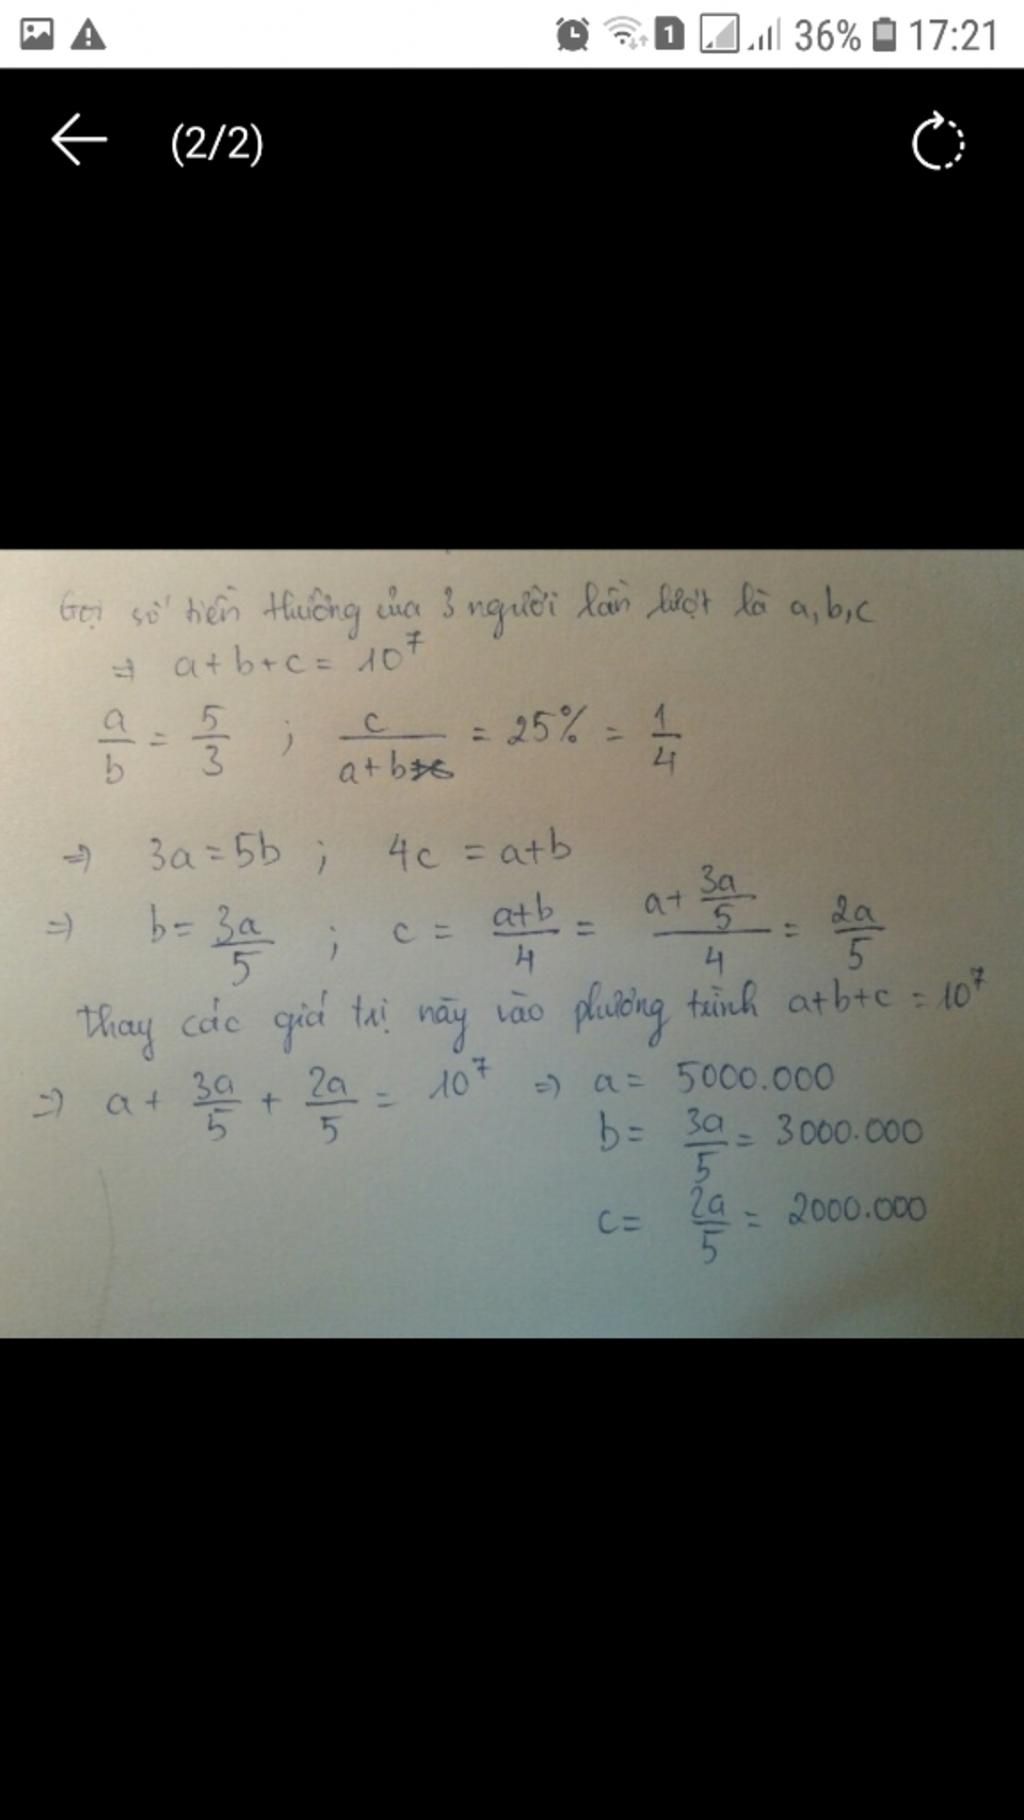 1 36% 17:21
(2/2)
Gọi số tiền thưởng của 3 người lần lượt là a,b,c
⇒ a+b+c = 10^7
a/b = 5/3 ; c/(a+b) = 25% = 1/4
⇒ 3a = 5b ; 4c = a+b
⇒ b = 3a/5 ; c = (a+b)/4 = (a + 3a/5)/4 = 2a/5
thay các giá trị này vào phương trình a+b+c = 10^7
⇒ a + 3a/5 + 2a/5 = 10^7 ⇒ a = 5000.000
b = 3a/5 = 3000.000
c = 2a/5 = 2000.000